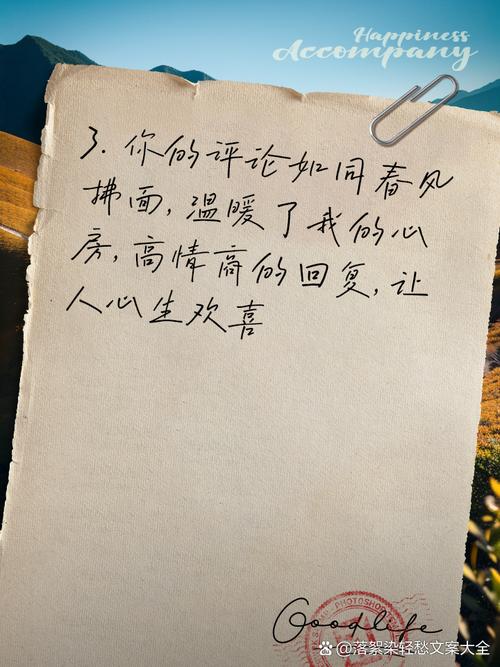 Happiness
Accompany
3. 你的评论如同春风
拂面,温暖了我的心
房,高情商的回复,让
人心生欢喜
PHOTOSHOP
Goodlife
@落絮染轻愁文案大全